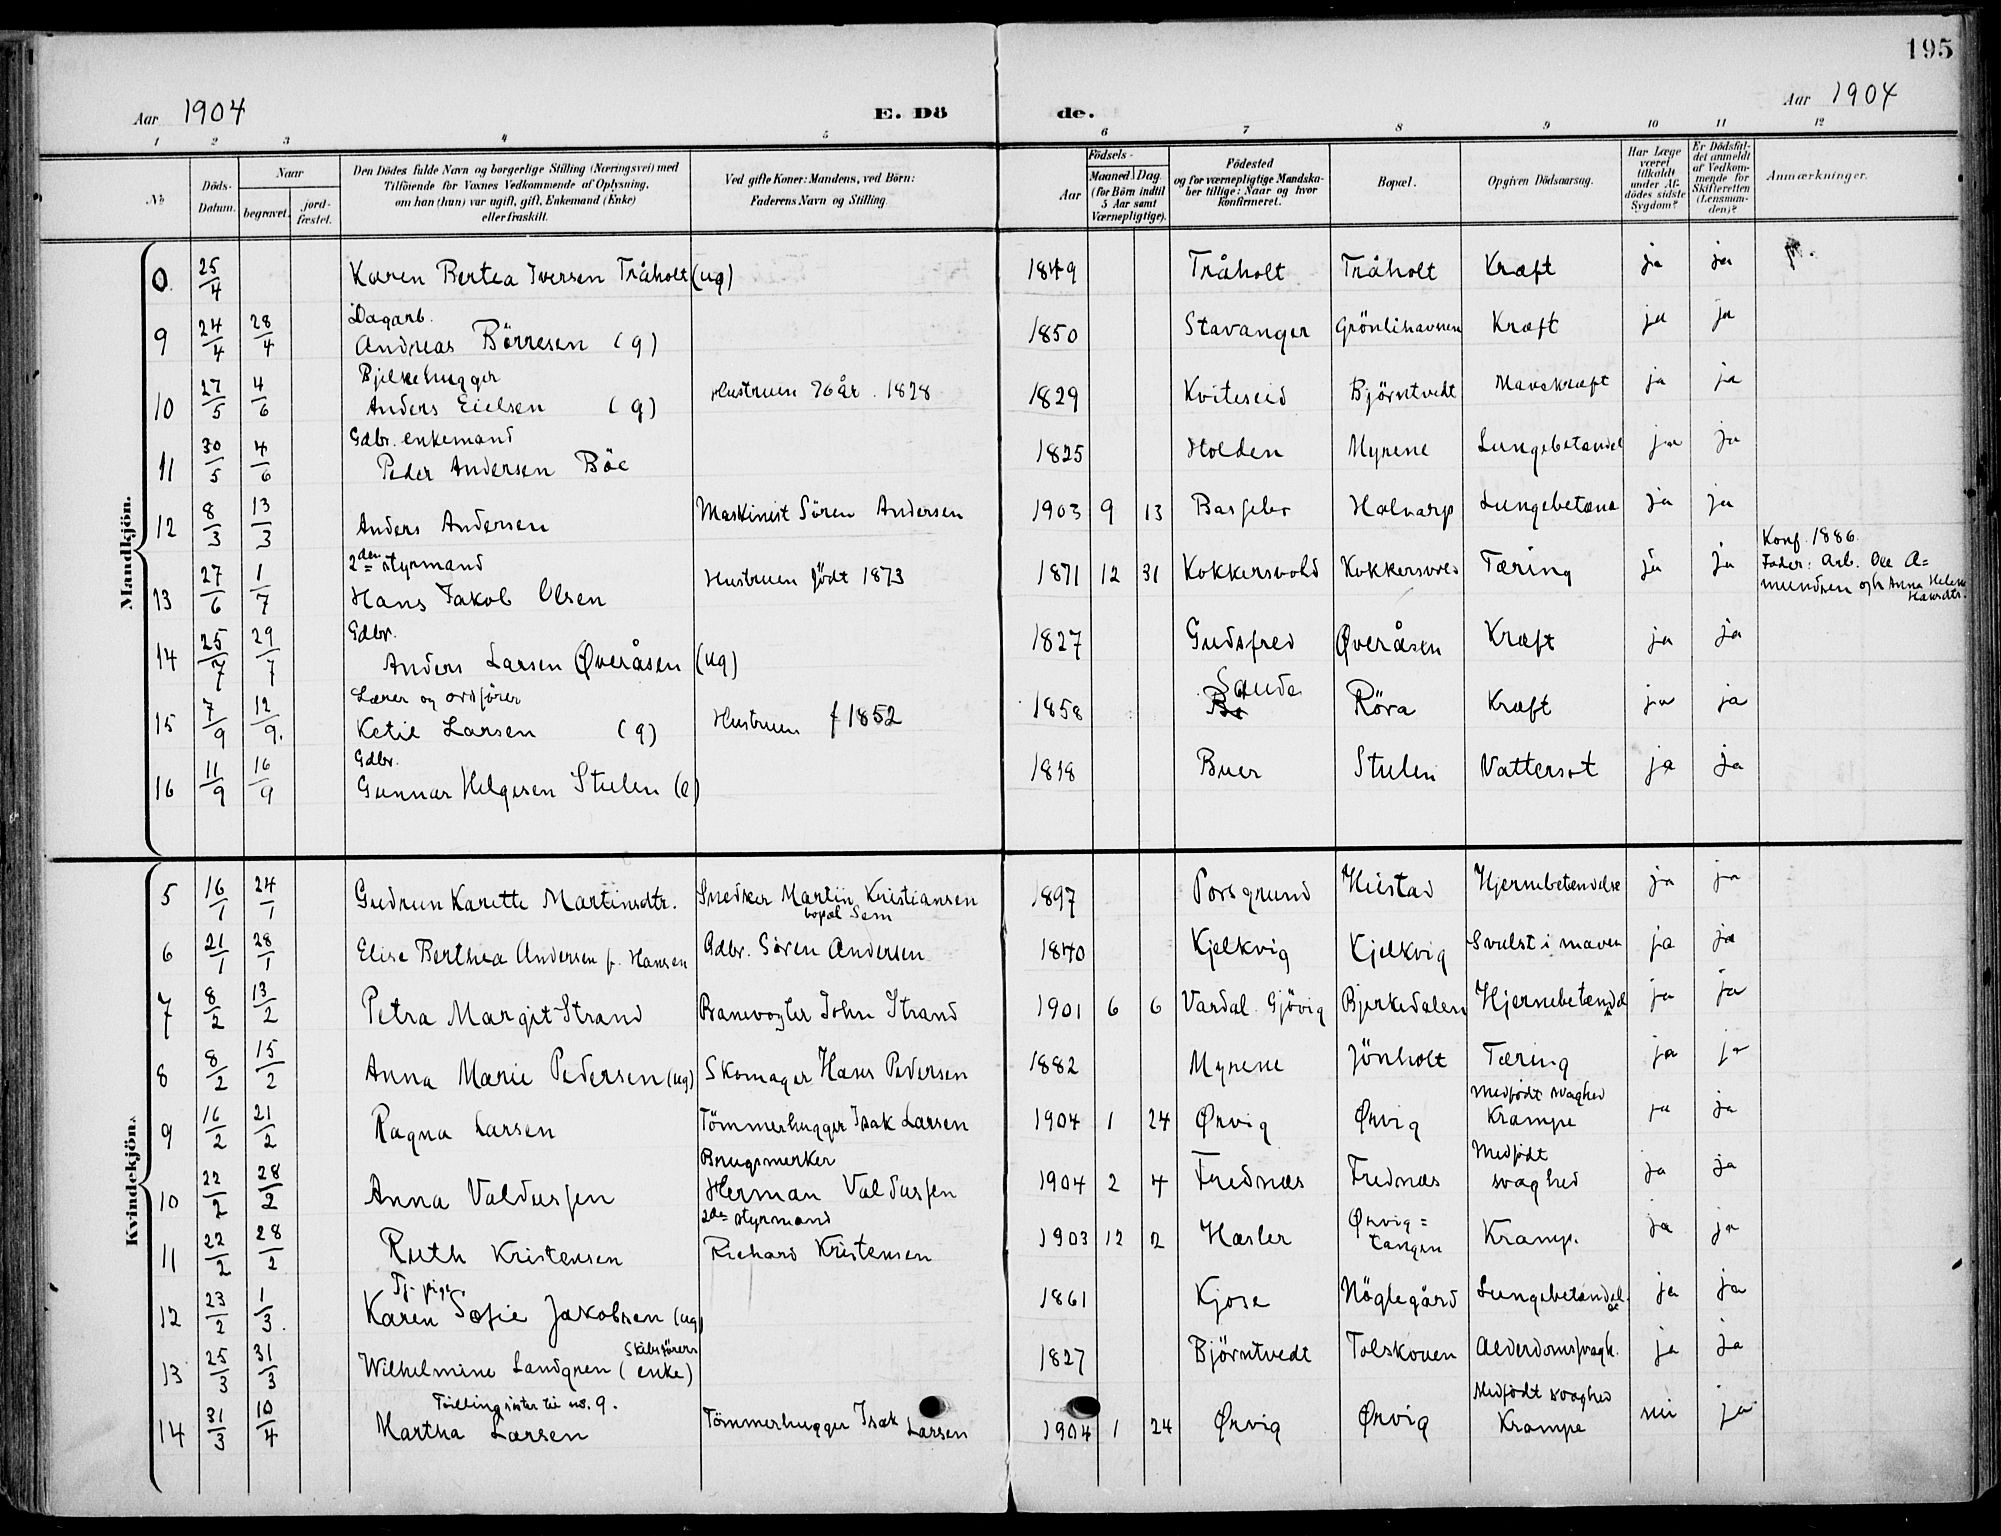 195
Aar 1904
E. Döde.
Aar 1904
1 2 3 4 5 6 7 8 9 10 11 12
No
Döds-Datum.
Naar
begravet.
jord-fæstet.
Den Dödes fulde Navn og borgerlige Stilling (Næringsvei) med
Tilföiende for Voxnes Vedkommende af Oplysning,
om han (hun) var ugift, gift, Enkemand (Enke)
eller fraskilt.
Ved gifte Koner: Mandens, ved Börn:
Faderens Navn og Stilling
Födsels-
Aar
Maaned. Dag.
(for Börn indtil
5 Aar samt
Værnepligtige).
Födested
og for værnepligtige Mandska-
ber tillige: Naar og hvor
konfirmeret.
Bopæl.
Opgiven Dödsaarsag.
Har Læge
været
tilkaldt
under Af-
dödes sidste
Sygdom?
Er Dödsfal-
det anmeldt
af Vedkom-
mende for
Skifteretten
(Lensman-
den)?
Anmærkninger.
Mandkjön.
0 25/4 Karen Bertea Iversen Tråholt (ug) 1849 Tråholt Tråholt Kræft ja ja
9 24/4 28/4 Dagarb. Andreas Börresen (g) 1850 Stavanger Grönlihavnen Kræft ja ja
10 27/5 4/6 Bjelkehugger Anders Eielsen (g) Hustruen 76 år. 1828 1829 Kviteseid Björntvedt Mavekræft ja ja
11 30/5 4/6 Gdbr. enkemand Peder Andersen Böe 1825 Holden Myrene Lungebetændel ja ja
12 8/3 13/3 Anders Andersen Maskinist Sören Andersen 1903 9 13 Lungebetænd ja ja
13 27/6 1/7 2den styrmand Hans Jakob Olsen Hustruen födt 1873 1871 12 31 Kokkersvold Kokkersvold Tæring ja ja Konf. 1886.
Fader: Arb. Ole A=
mundsen og h. Anna Helene
Hansdtr.
14 25/7 29/7 Gdbr. Anders Larsen Øveråsen (ug) 1827 Gudsfred Øveråsen Kræft ja ja
15 7/9 12/9. Lærer og ordförer Ketil Larsen (g) Hustruen f 1852 1858 Saude Röra Kræft ja ja
16 11/9 16/9 Gdbr. Gunnar Helgesen Stulen (e) 1818 Buer Stulen Vattersot ja ja
Kvindekjön.
5 16/1 24/1 Gudrun Karette Martinsdtr. Snedker Martin Kristiansen bopæl Sem 1897 Porsgrund Heistad Hjernebetændelse ja ja
6 21/1 28/1 Elise Berthea Andersen f. Hansen Gdbr. Sören Andersen 1840 Kjelkvig Kjelkvig Svulst i maven ja ja
7 8/2 13/2 Petra Margit Strand Banevogter John Strand 1901 6 6 Vardal Gjövig Bjerkedalen Hjernebetændelse ja ja
8 8/2 15/2 Anna Marie Pedersen (ug) Skomager Hans Pedersen 1882 Myrene Jönholt Tæring ja ja
9 16/2 21/2 Ragna Larsen Tömmerhugger Isak Larsen 1904 1 24 Ørvig Ørvig Medfödt svaghed Krampe ja ja
10 22/2 28/2 Anna Valdussen Brugsmerker Herman Valdussen 1904 2 4 Frednæs Frednæs Medfödt svaghed ja ja
11 22/2 28/2 Ruth Kristensen 2den styrmand Richard Kristensen 1903 12 2 Hasler Ørvig= tangen Kramp. ja ja
12 23/2 1/3. Tj. pige Karen Sofie Jakobsen (ug) 1861 Kjose Nöglegård Lungebetændelse ja ja
13 25/3 31/3 Wilhelmine Landgren (Skibsförers enke) 1827 Björntvedt Tolskoven Alderdomssvagh. ja ja
14 31/3 10/4 Tvillingsöster til no. 9. Martha Larsen Tömmerhugger Isak Larsen 1904 1 24 Ørvig Ørvig Medfödt svaghed Krampe nei ja